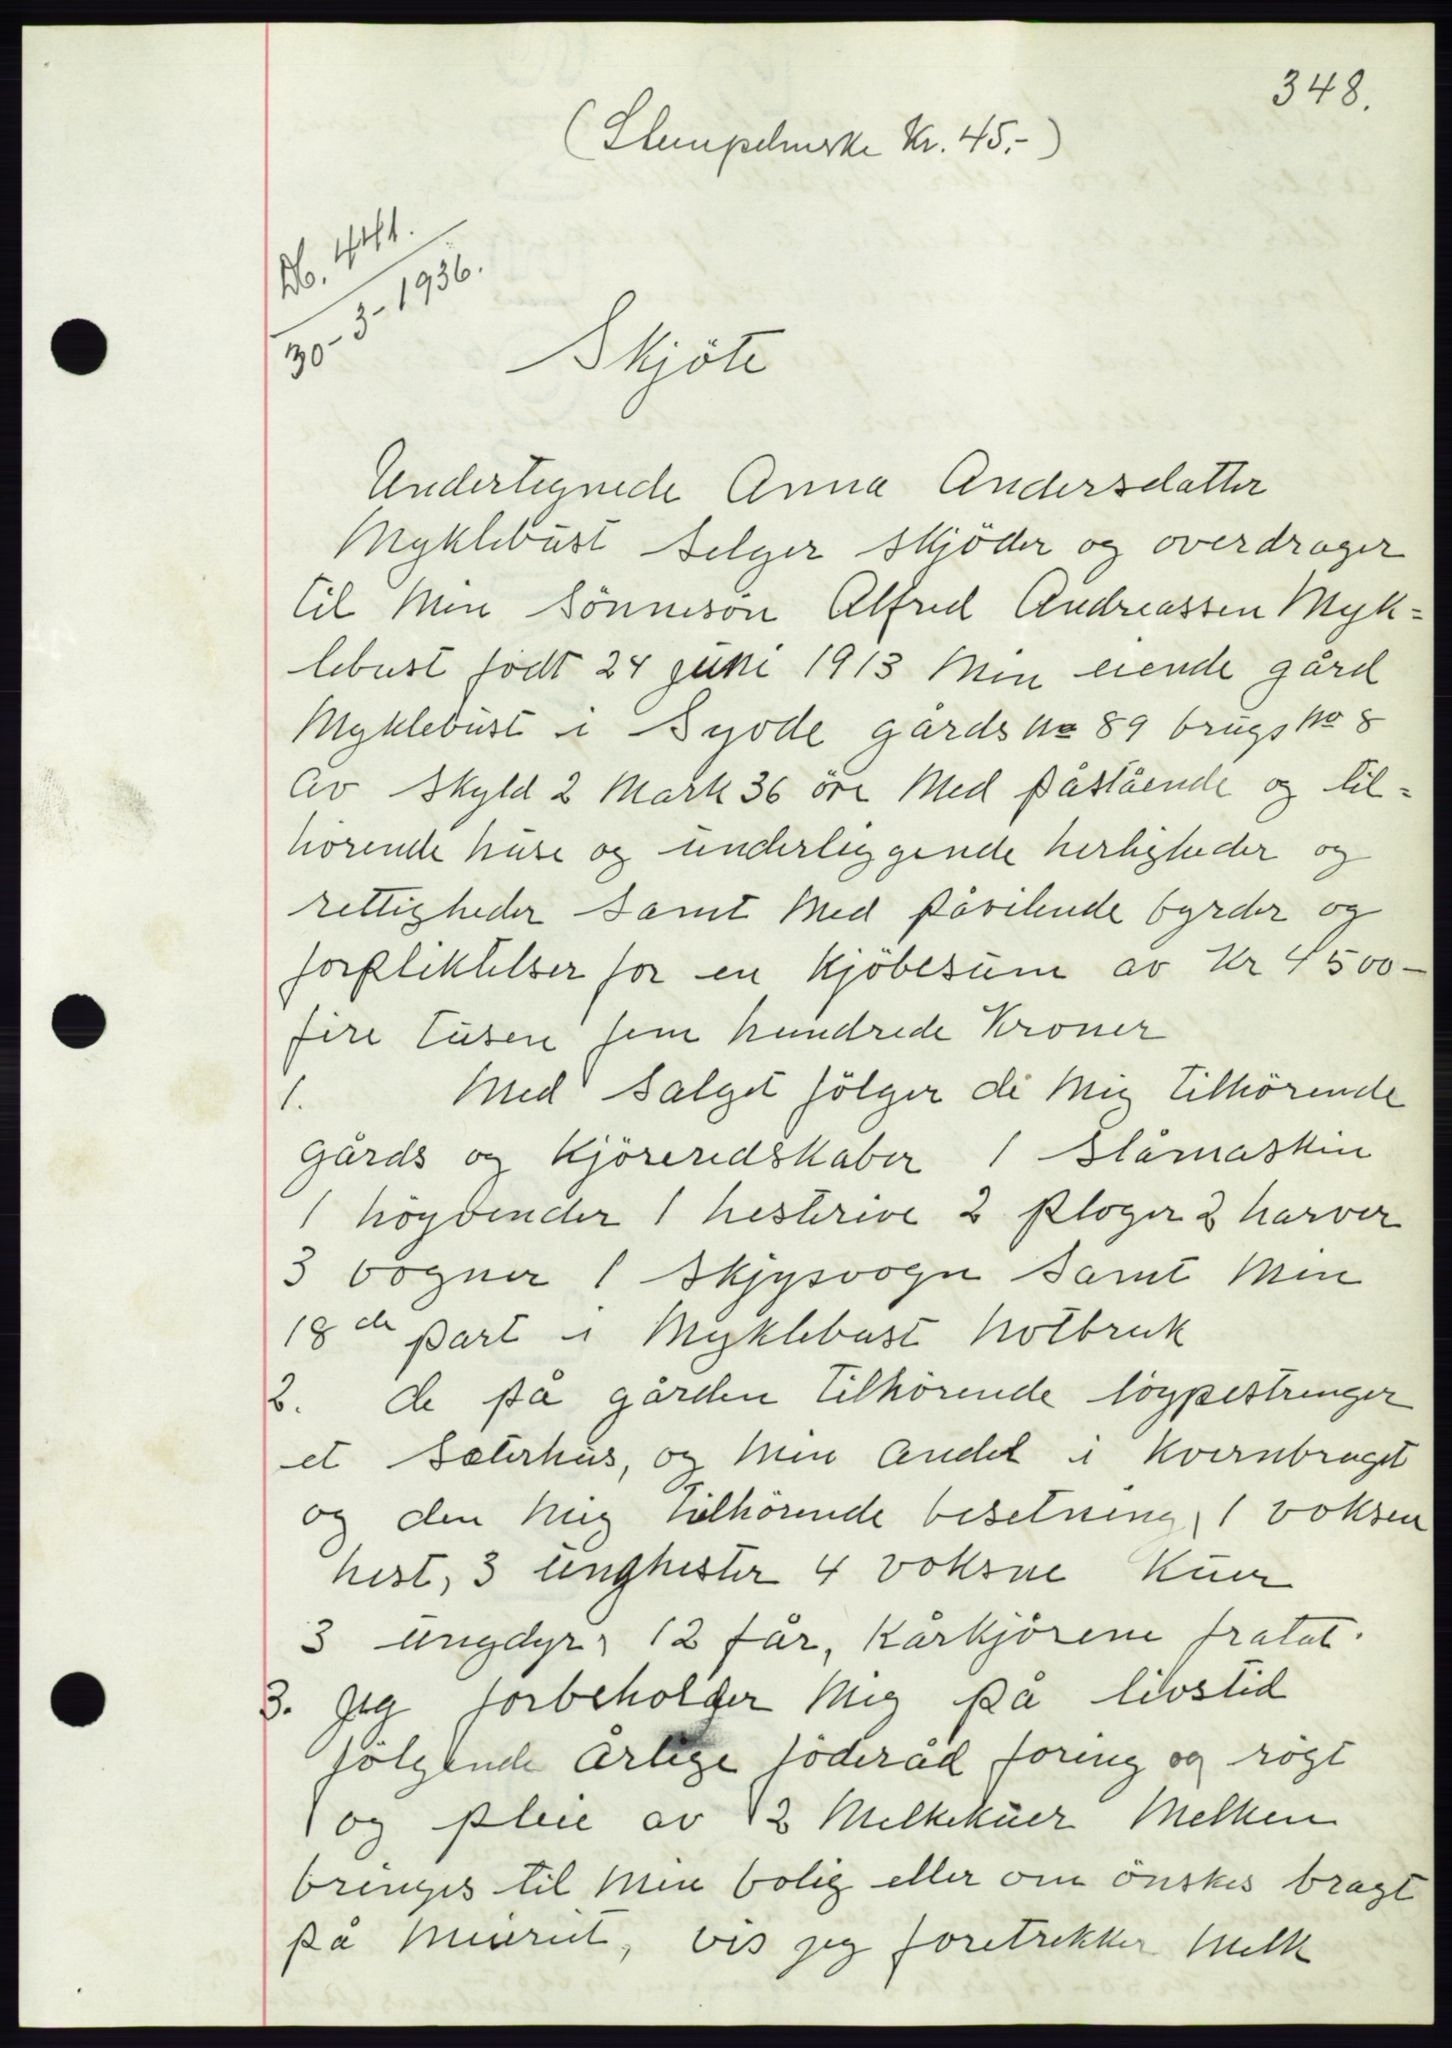 348.
(Stempelmerke Kr. 45.-)
Db. 441.
30-3-1936.
Skjöte
Undertegnede Anna Andersdatter
Myklebust selger skjöder og overdrager
til min sönnesön Alfred Andreassen Myk=
lebust født 24 juni 1913 min eiende gård
Myklebust i Syvde gårds no 89 brugs no 8
av skyld 2 mark 36 öre med påstående og til=
hörende huse og underliggende herligheder og
rettigheder samt med påvilende byrder og
forpliktelser for en kjöbesum av Kr 4500-
fire tusen fem hundrede Kroner
1. Med salget fölger de mig tilhörende
gårds og kjöreredskaber 1 slåmaskin
1 höyvender 1 hesterive 2 ploger 2 harver
3 vogner 1 skjysvogn samt min
18de part i Myklebust notbruk
2. de på gården tilhörende löypestrenger
et sæterhus, og min andel i kvernbruget
og den mig tilhörende besetning, 1 voksen
hest, 3 unghester 4 voksne kuer
3 ungdyr, 12 får, kårkjörene fratat.
3. Jeg forbeholder mig på livstid
fölgende årlige föderåd foring og rögt
og pleie av 2 melkekuer melken
bringes til min bolig eller om önskes bragt
på meieriet, vis jeg foretrekker melk